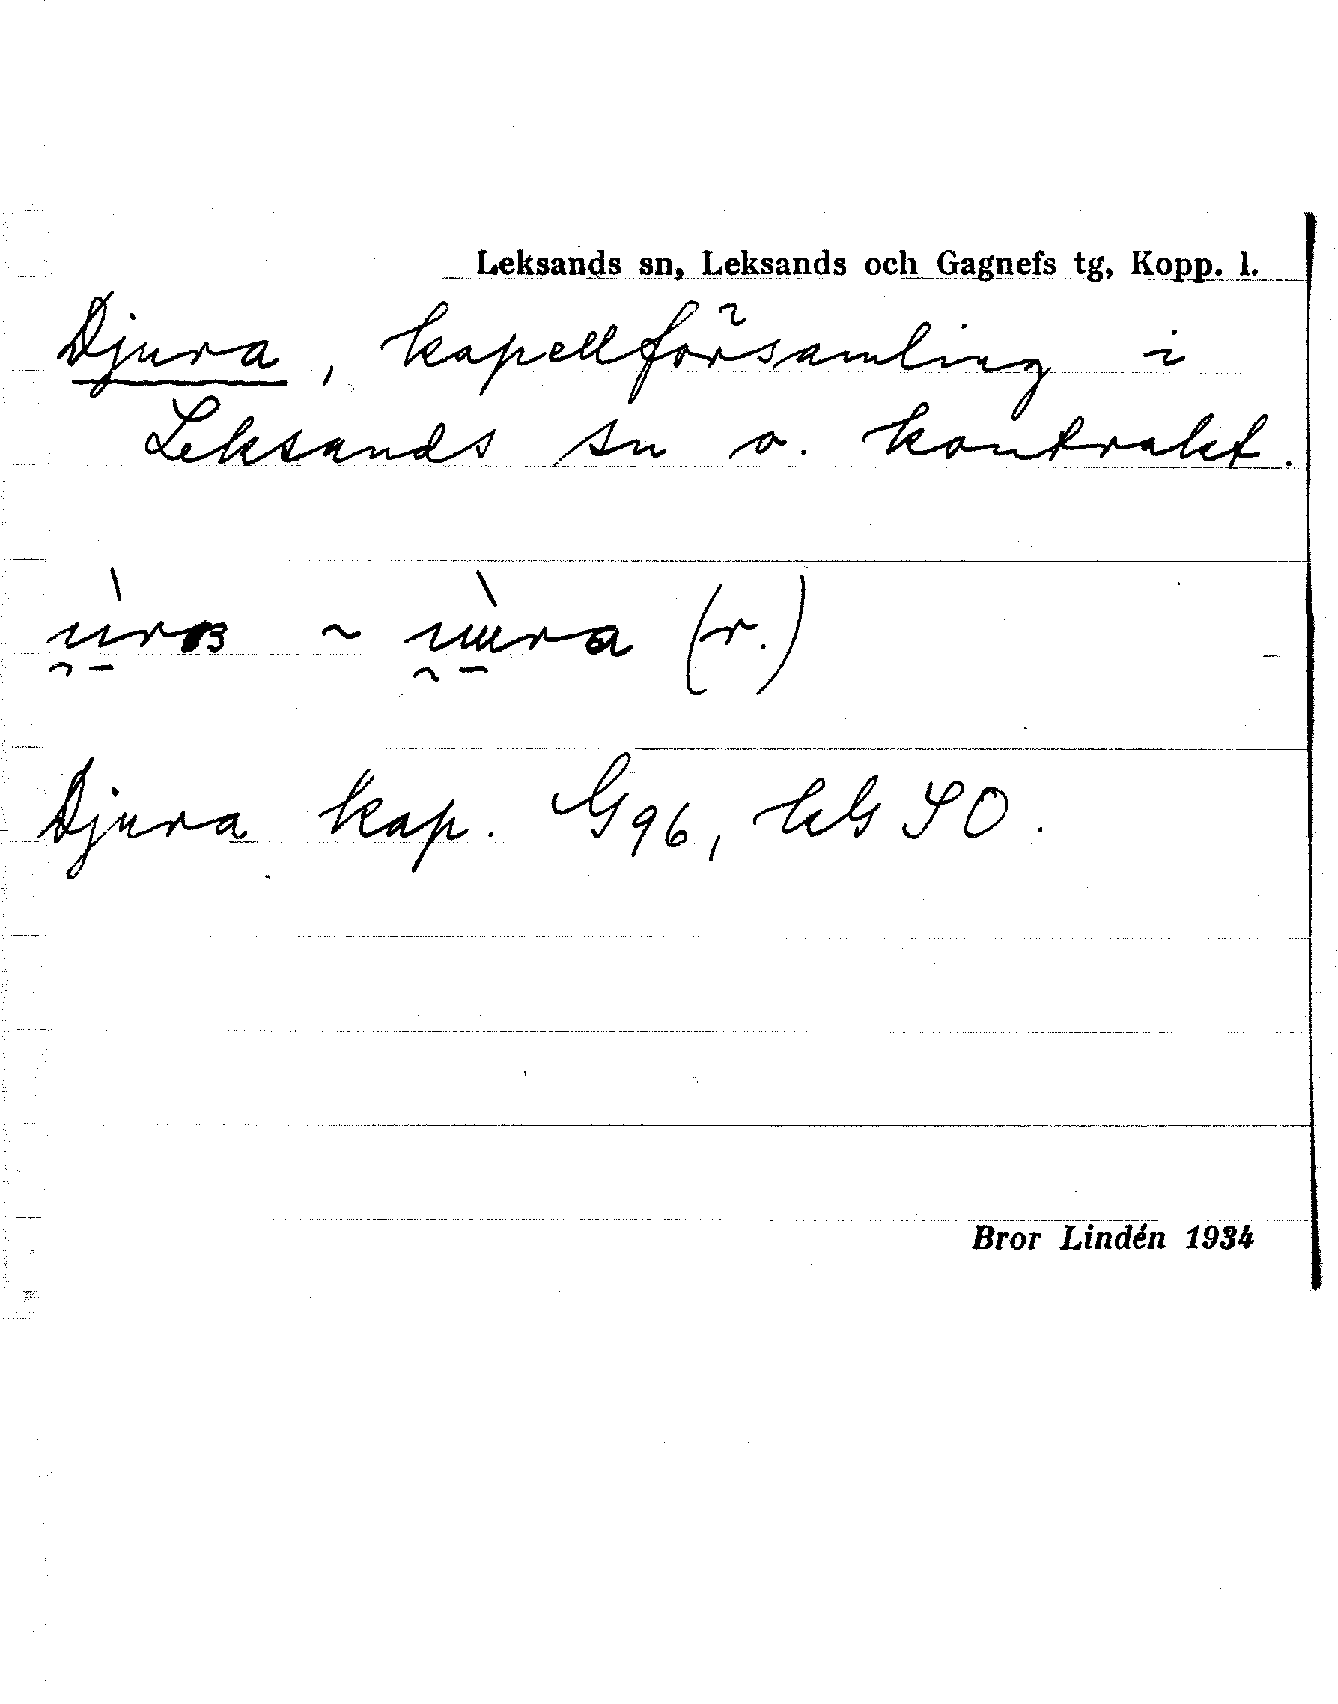 Leksands sn, Leksands och Gagnefs tg, Kopp. l.
Djura, kapellförsamling i
Leksands sn o. kontrakt.
~ (r.)
Djura kap. G96, kG SO.
Bror Lindén 1934